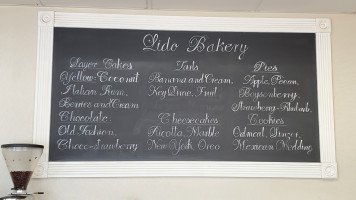 Lido Bakery
Layer Cakes
Yellow-Coconut
Italian Rum,
Berries and Cream
Chocolate
Old Fashion,
Choco-strawberry
Tarts
Banana and Cream,
Key Lime, Fruit
Cheesecakes
Ricotta, Marble
New York, Oreo
Pies
Apple, Pecan,
Boysenberry,
Strawberry-Rhubarb,
Cookies
Oatmeal, Linzer,
Mexican Wedding